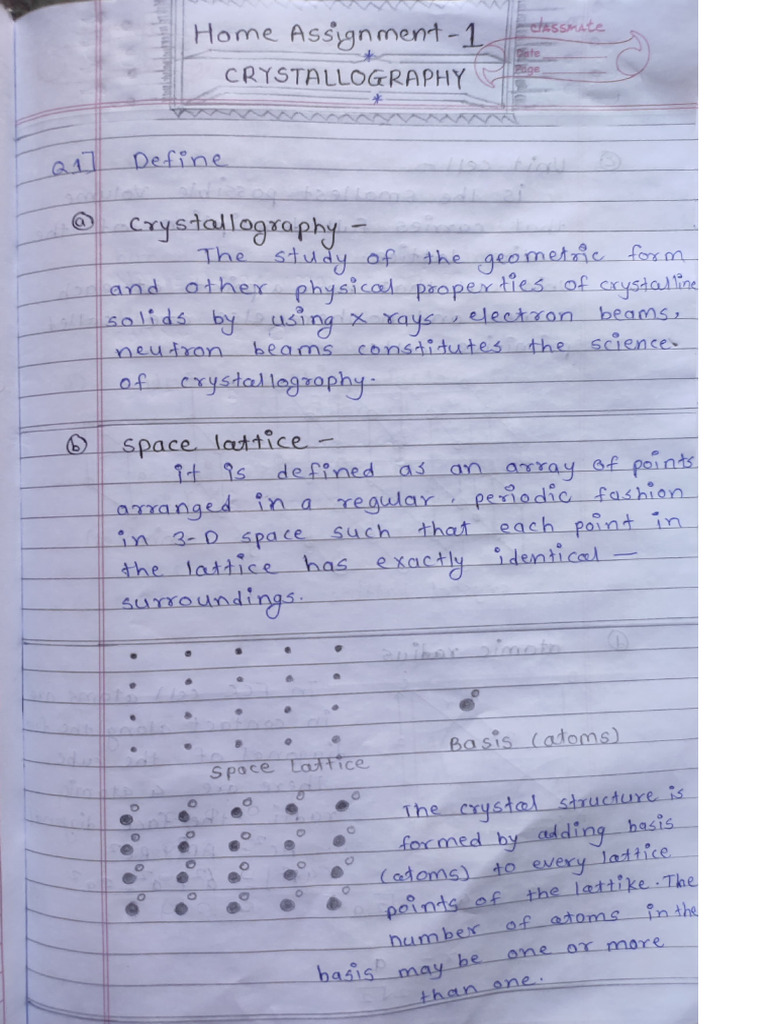 Home Assignment-1
classmate
Date
Page
CRYSTALLOGRAPHY
Q1] Define
(a) crystallography -
The study of the geometric form
and other physical properties of crystalline
solids by using x rays, electron beams,
neutron beams constitutes the science
of crystallography.
(b) space lattice -
it is defined as an array of points
arranged in a regular, periodic fashion
in 3-D space such that each point in
the lattice has exactly identical -
surroundings.
Basis (atoms)
space Lattice
The crystal structure is
formed by adding basis
(atoms) to every lattice
points of the lattike. The
number of atoms in the
basis may be one or more
than one.